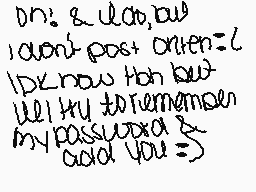 Oh! & I do, but
i don't post often =(
IDK how tbh but
Ull try to remember
my password &
add you =)